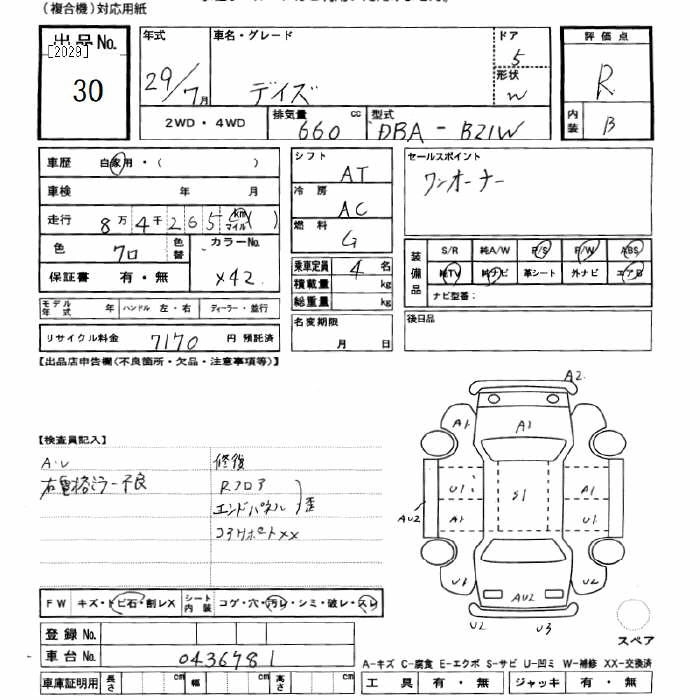 (複合機)対応用紙
出品No.
[2029]
30
年式
29/7月
車名・グレード
デイズ
ドア
5
形状
W
評価点
R
内装
B
2WD・4WD
排気量
660 cc
型式
DBA-B21W
車歴 自家用・( )
車検 年 月
走行 8万4千265 km マイル ( )
色 クロ 色替 カラーNo. X42
保証書 有・無
シフト
AT
冷房
AC
燃料
G
乗車定員 4 名
積載量 kg
総重量 kg
セールスポイント
ワンオーナー
装備品
S/R 純A/W P/S P/W ABS
純TV 純ナビ 革シート 外ナビ エアB
ナビ型番:
モデル年式 年 ハンドル 左・右 ディーラー・並行
リサイクル料金 7170 円 預託済
名変期限
月 日
後日品
【出品店申告欄(不良箇所・欠品・注意事項等)】
【検査員記入】
A・U
右電格ミラー不良
修復
Rフロア
エンドパネル
歪
コアサポートXX
A2
A1
A1
U1
A1
AU2
S1
A1
U1
U3
AU2
U2
U2
U3
スペア
FW キズ・トビ石・割レX シート内装 コゲ・穴・汚レ・シミ・破レ・スレ
登録No.
車台No. 0436781
車庫証明用 長さ cm 幅 cm 高さ cm
A-キズ C-腐食 E-エクボ S-サビ U-凹ミ W-補修 XX-交換済
工具 有・無 ジャッキ 有・無